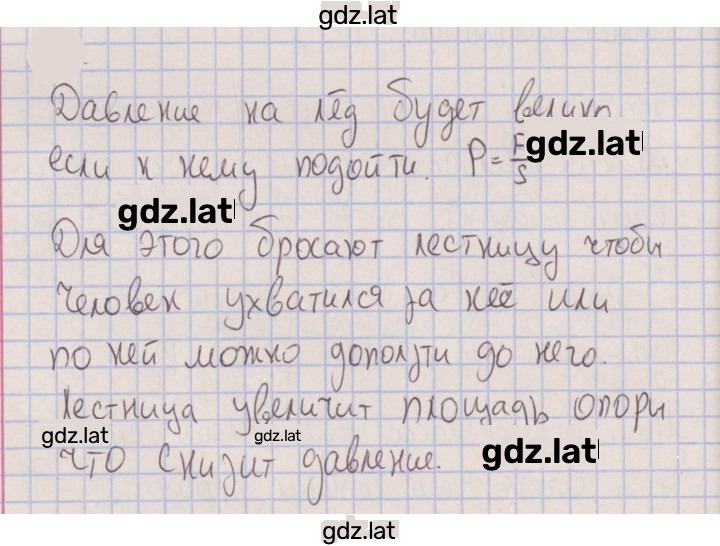 gdz.lat
Давление на лёд будет велико
если к нему подойти. P = F/S
gdz.lat
gdz.lat
Для этого бросают лестницу чтобы
человек ухватился за неё или
по ней можно доползти до него.
Лестница увеличит площадь опоры
gdz.lat
gdz.lat
что снизит давление.
gdz.lat
gdz.lat